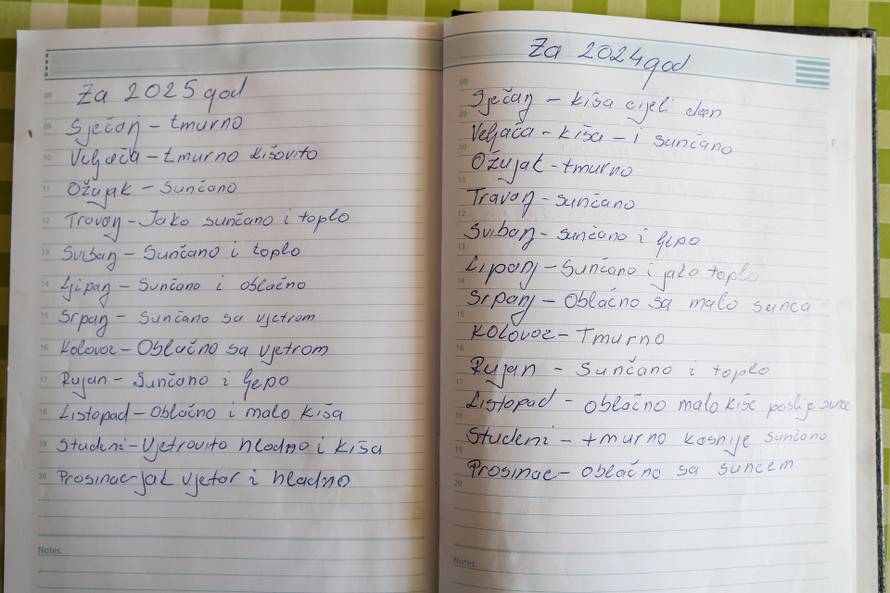 Za 2025 god
Sječanj - tmurno
Veljača - tmurno kišovito
Ožujak - Sunčano
Travanj - Jako sunčano i toplo
Svibanj - Sunčano i toplo
Lipanj - Sunčano i oblačno
Srpanj - Sunčano sa vjetrom
Kolovoz - Oblačno sa vjetrom
Rujan - Sunčano i ljepo
Listopad - Oblačno i malo kiša
Studeni - Vjetrovito hladno i kiša
Prosinac - jak vjetar i hladno
Notes:
08
09
10
11
12
13
14
15
16
17
18
19
20
Za 2024 god
Sječanj - kiša cijeli dan
Veljača - kiša - i sunčano
Ožujak - tmurno
Travanj - sunčano
Svibanj - sunčano i ljepo
Lipanj - Sunčano i jako toplo
Srpanj - Oblačno sa malo sunca
Kolovoz - Tmurno
Rujan - Sunčano i toplo
Listopad - oblačno malo kiše poslije sunce
Studeni - tmurno kasnije sunčano
Prosinac - oblačno sa suncem
Notes:
08
09
10
11
12
13
14
15
16
17
18
19
20